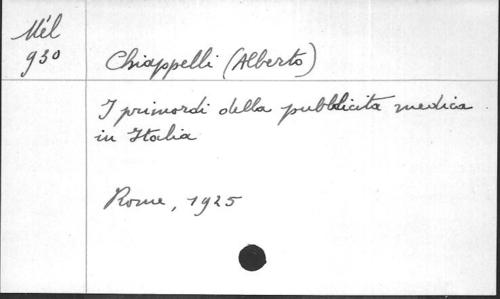 Mél
930
Chiappelli (Alberto)
I primordi della pubblicita medica
in Italia
Rome, 1925